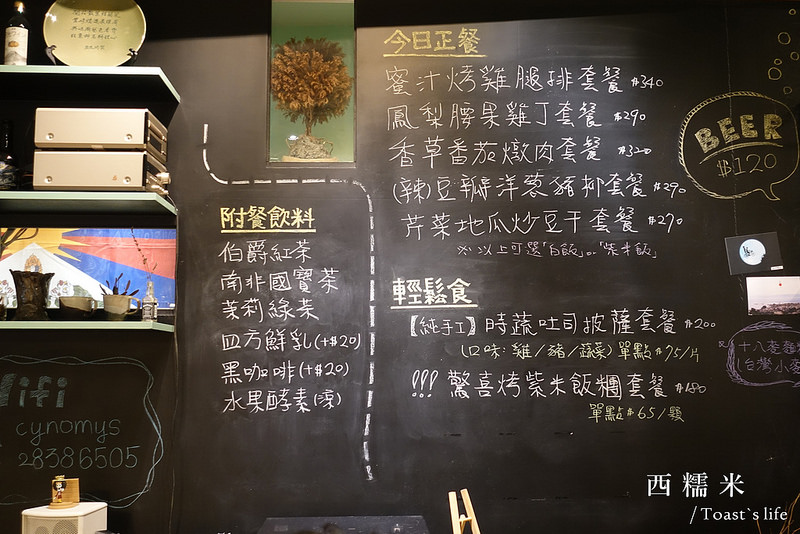 今日正餐
蜜汁烤雞腿排套餐 $340
鳳梨腰果雞丁套餐 $290
香草番茄燉肉套餐 $320
(辣)豆瓣洋蔥豬排套餐 $290
芹菜地瓜炒豆干套餐 $270
※以上可選「白飯」or「紫米飯」
BEER
$120
附餐飲料
伯爵紅茶
南非國寶茶
茉莉綠茶
四方鮮乳(+$20)
黑咖啡(+$20)
水果酵素(涼)
輕鬆食
【純手工】時蔬吐司披薩套餐 $200
(口味:雞/豬/蔬菜)單點$95/片
!!! 驚喜烤紫米飯糰套餐 $180
單點$65/顆
台灣小麥
ifi
cynomys
28386505
西糯米
/Toast`s life